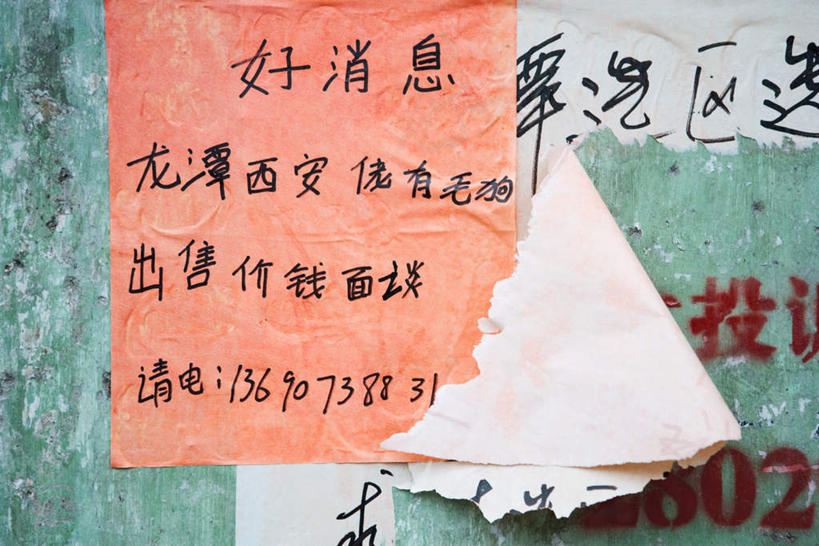 好消息
龙潭西安佬有毛狗
出售价钱面谈
请电:13690738831
潭洗区选
投诉
2802
求